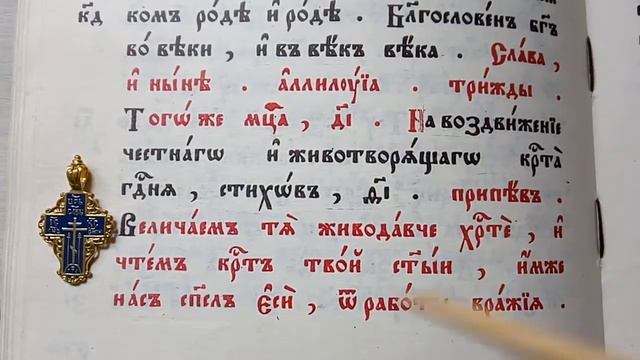 к҃д комъ ро́дѣ и҆ ро́дѣ . Бл҃гослове́нъ бг҃ъ
во́ вѣки , и҆ въ вѣ́къ вѣ́ка . Сла́ва ,
и҆ ны́нѣ . а҆ллилѹ́їа . три́жды .
Тогѡ́ же мц҃а , д҃і . На воздви́женїе
честна́гѡ и҆ животворѧ́щагѡ крⷭ҇та̀
гдⷭ҇нѧ , стихѡ́въ , д҃і . припѣ́въ .
Велича́емъ тѧ̀ живода́вче хрⷭ҇тѐ , и҆
чте́мъ крⷭ҇тъ тво́й ст҃ы́и , и҆́мже
на́съ сп҃слъ є҆сѝ , ѿ рабо́ты вра́жїѧ .